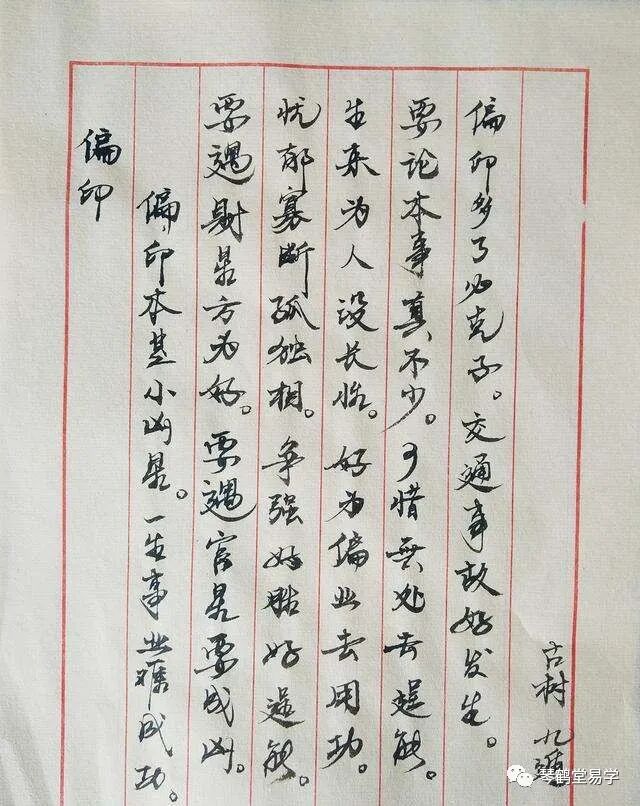 偏印
偏印本是小凶星。一生事业难成功。
要遇财星方为好。要遇官星要成凶。
忧郁寡断孤独相。争强好胜好逞能
生来为人没长。好为偏业去用功。
要论本事真不少。可惜無处去逞能。
偏印多了必克子。交通事故好发生。
古树
琴鹤堂易学